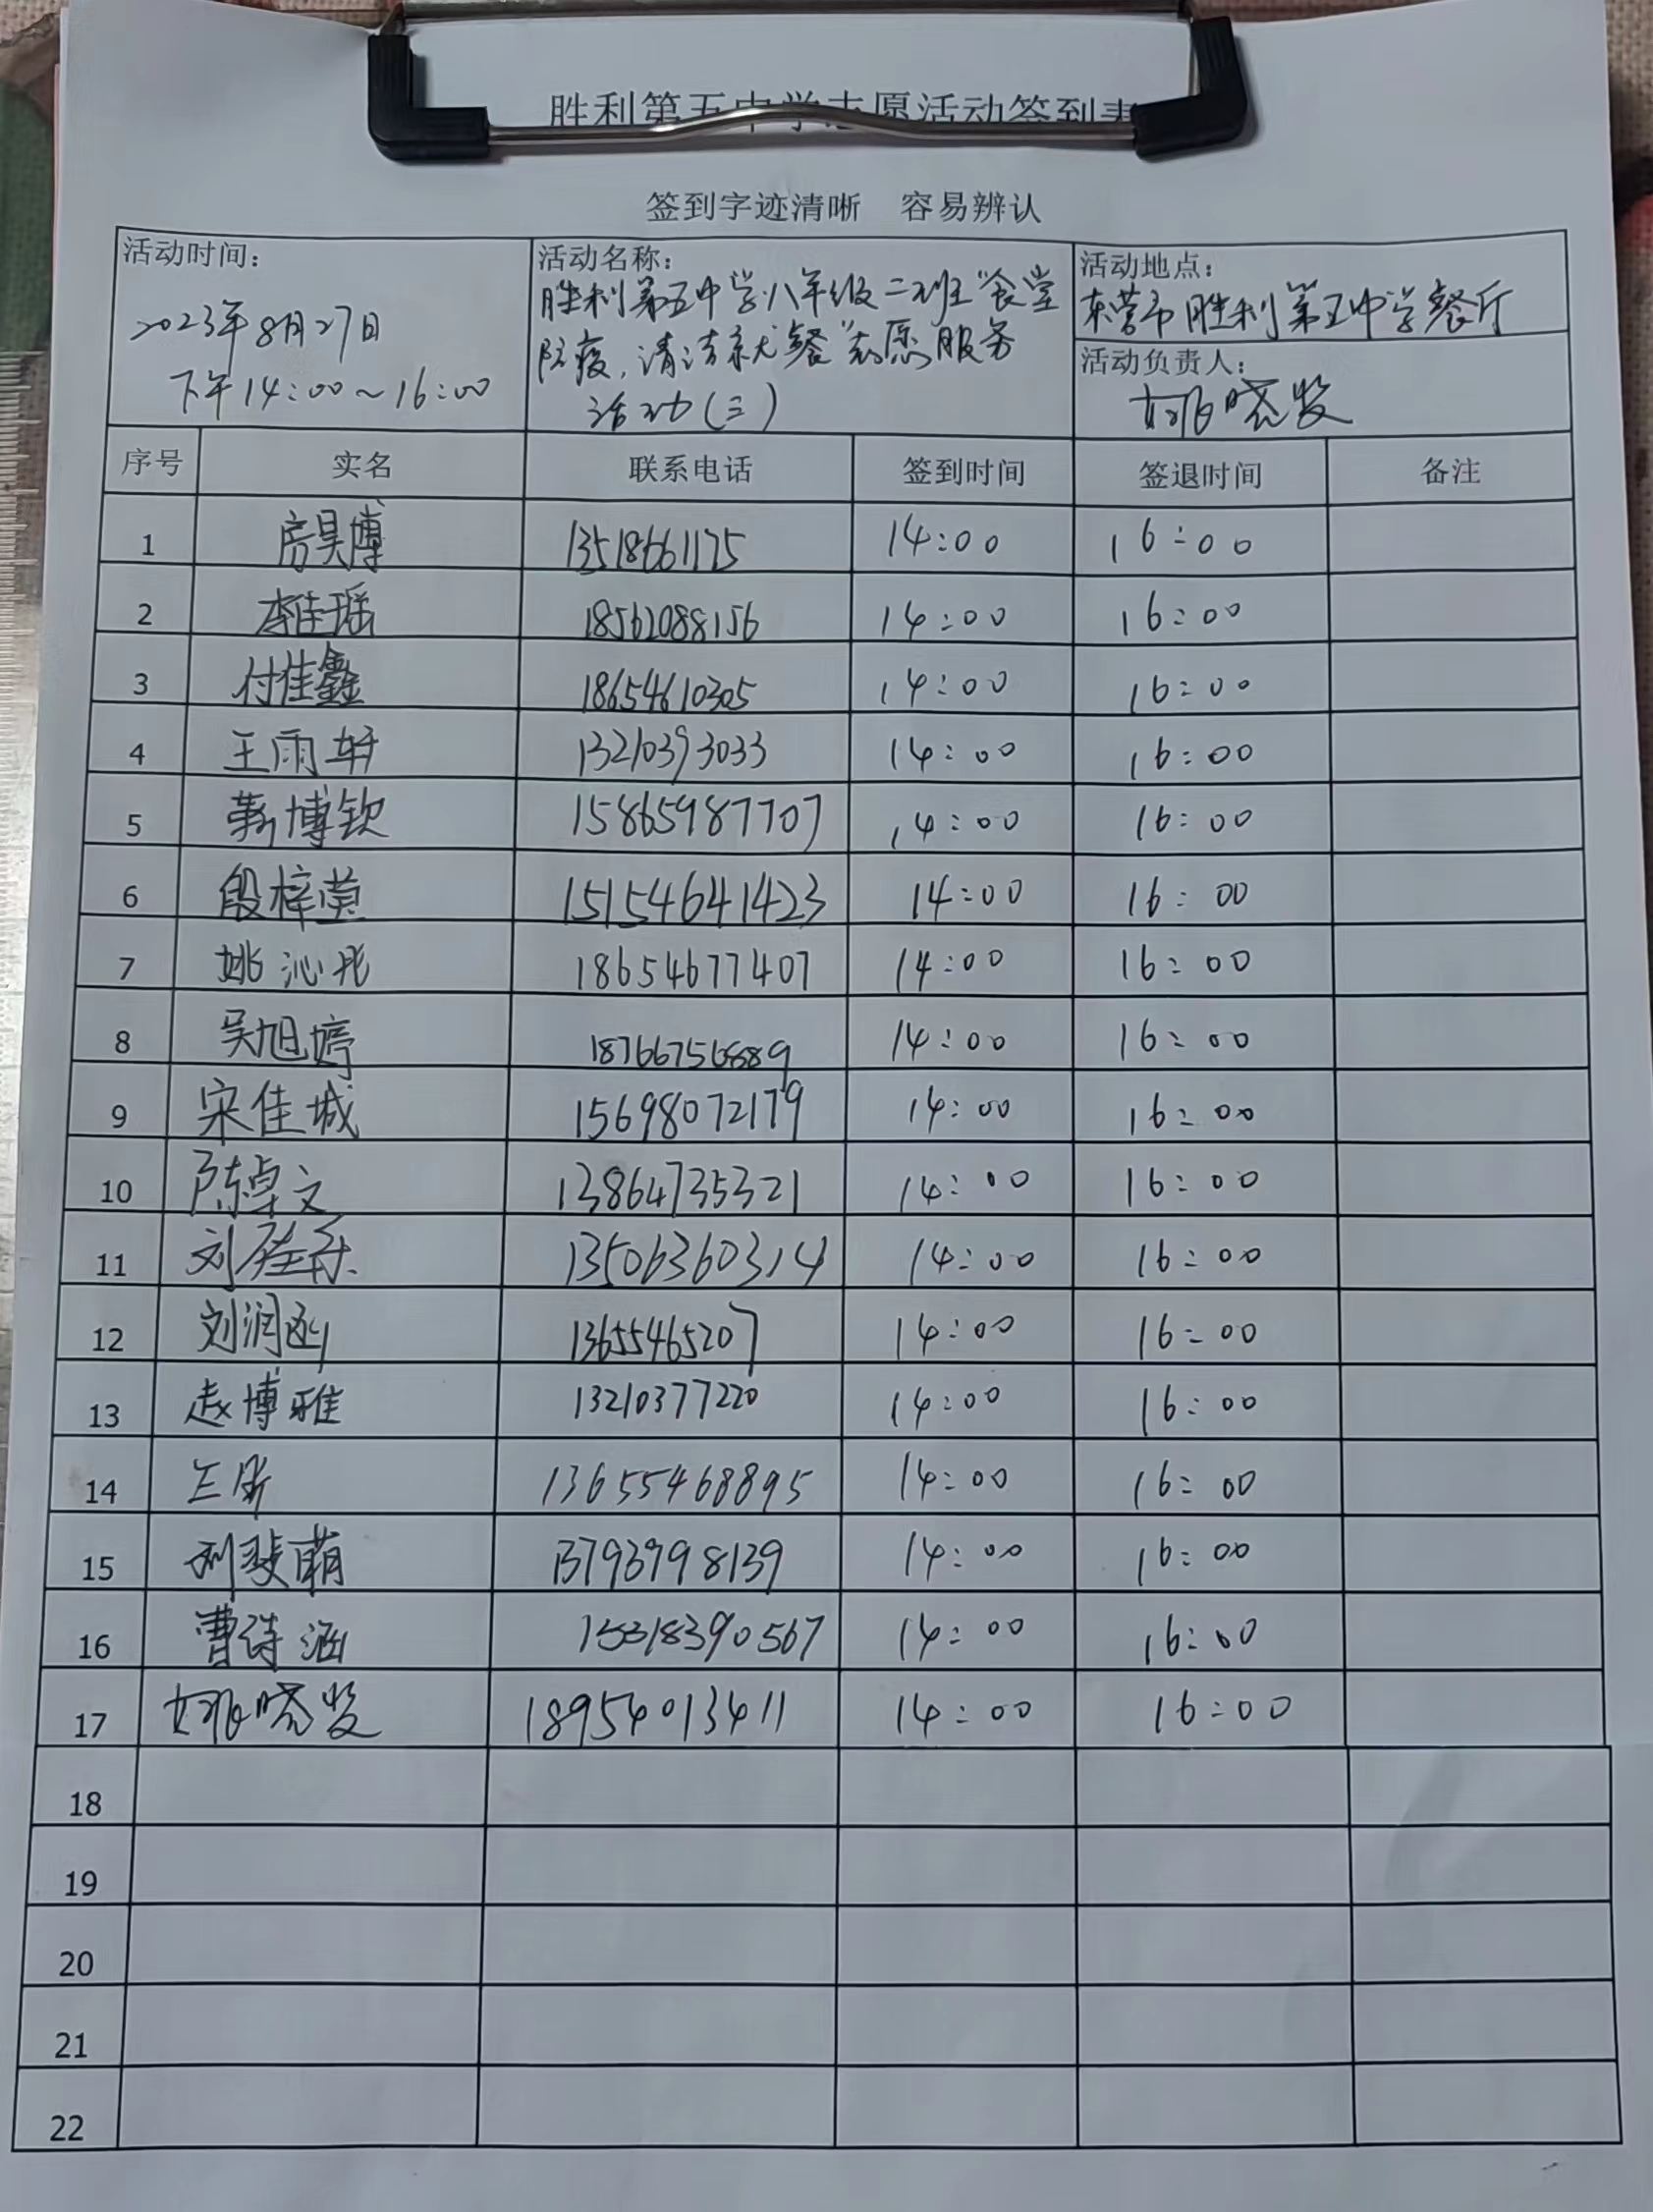 胜利第五中学志愿活动签到表
签到字迹清晰 容易辨认
活动时间：
2023年8月27日
下午14:00~16:00
活动名称：
胜利第五中学八年级二班"食堂
防疫，清洁就餐"志愿服务
活动(三)
活动地点：
东营市胜利第五中学餐厅
活动负责人：
姚晓
序号 实名 联系电话 签到时间 签退时间 备注
1 房昊博 13518661175 14:00 16:00
2 李佳瑶 18562088156 14:00 16:00
3 付佳鑫 18654610305 14:00 16:00
4 王雨轩 13210393033 14:00 16:00
5 靳博钦 15865987707 14:00 16:00
6 殷梓萱 15154641423 14:00 16:00
7 姚沁彤 18654677407 14:00 16:00
8 吴旭婷 14:00 16:00
9 宋佳城 15698072179 14:00 16:00
10 陈卓文 13864735321 14:00 16:00
11 刘 13506360314 14:00 16:00
12 刘润函 13655465207 14:00 16:00
13 赵博雅 13210377220 14:00 16:00
14 13655468895 14:00 16:00
15 刘斐萌 13793798139 14:00 16:00
16 曹诗涵 15318390567 14:00 16:00
17 姚晓 18954013411 14:00 16:00
18
19
20
21
22